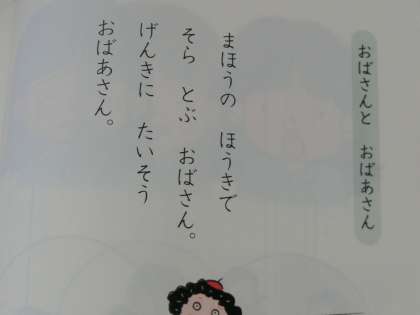 おばさんと おばあさん
まほうの ほうきで
そら とぶ おばさん。
げんきに たいそう
おばあさん。